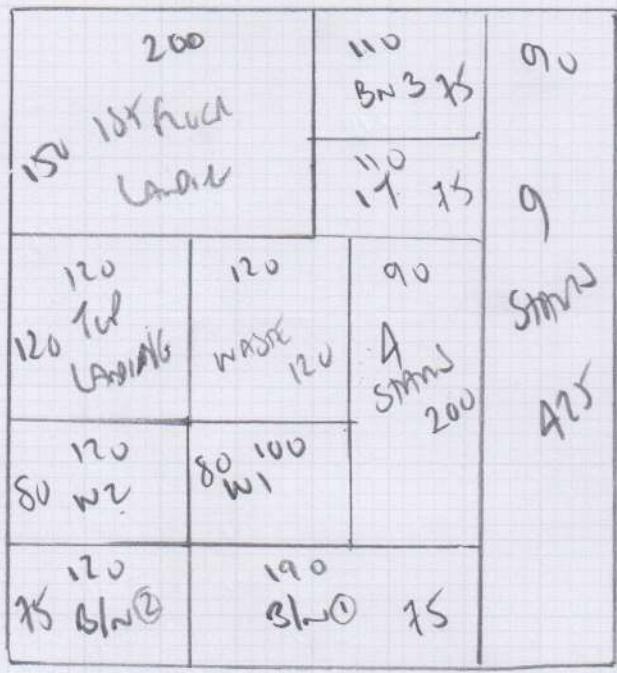 200
150 1ST FLOOR
LANDING
110
BN 3 75
110
75
90
9
STAIRS
425
120
120 TOP
LANDING
120
WASTE
120
90
4
STAIRS
200
120
80 W2
80 100
W1
120
75 B/N ②
190
B/N ① 75